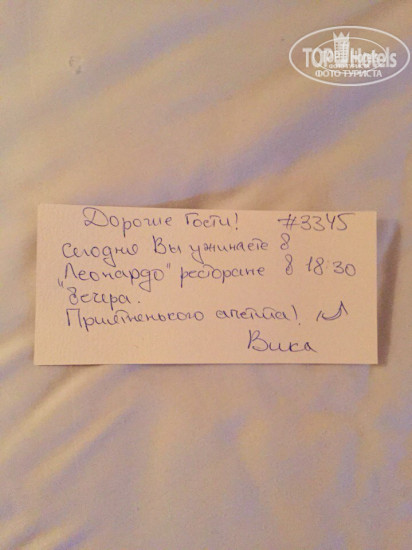 TOPHotels
ФОТО ТУРИСТА
Дорогие Гости! #3345
сегодня Вы ужинаете в
"Леонардо" ресторане в 18:30
вечера.
Приятненького аппетита!
Вика